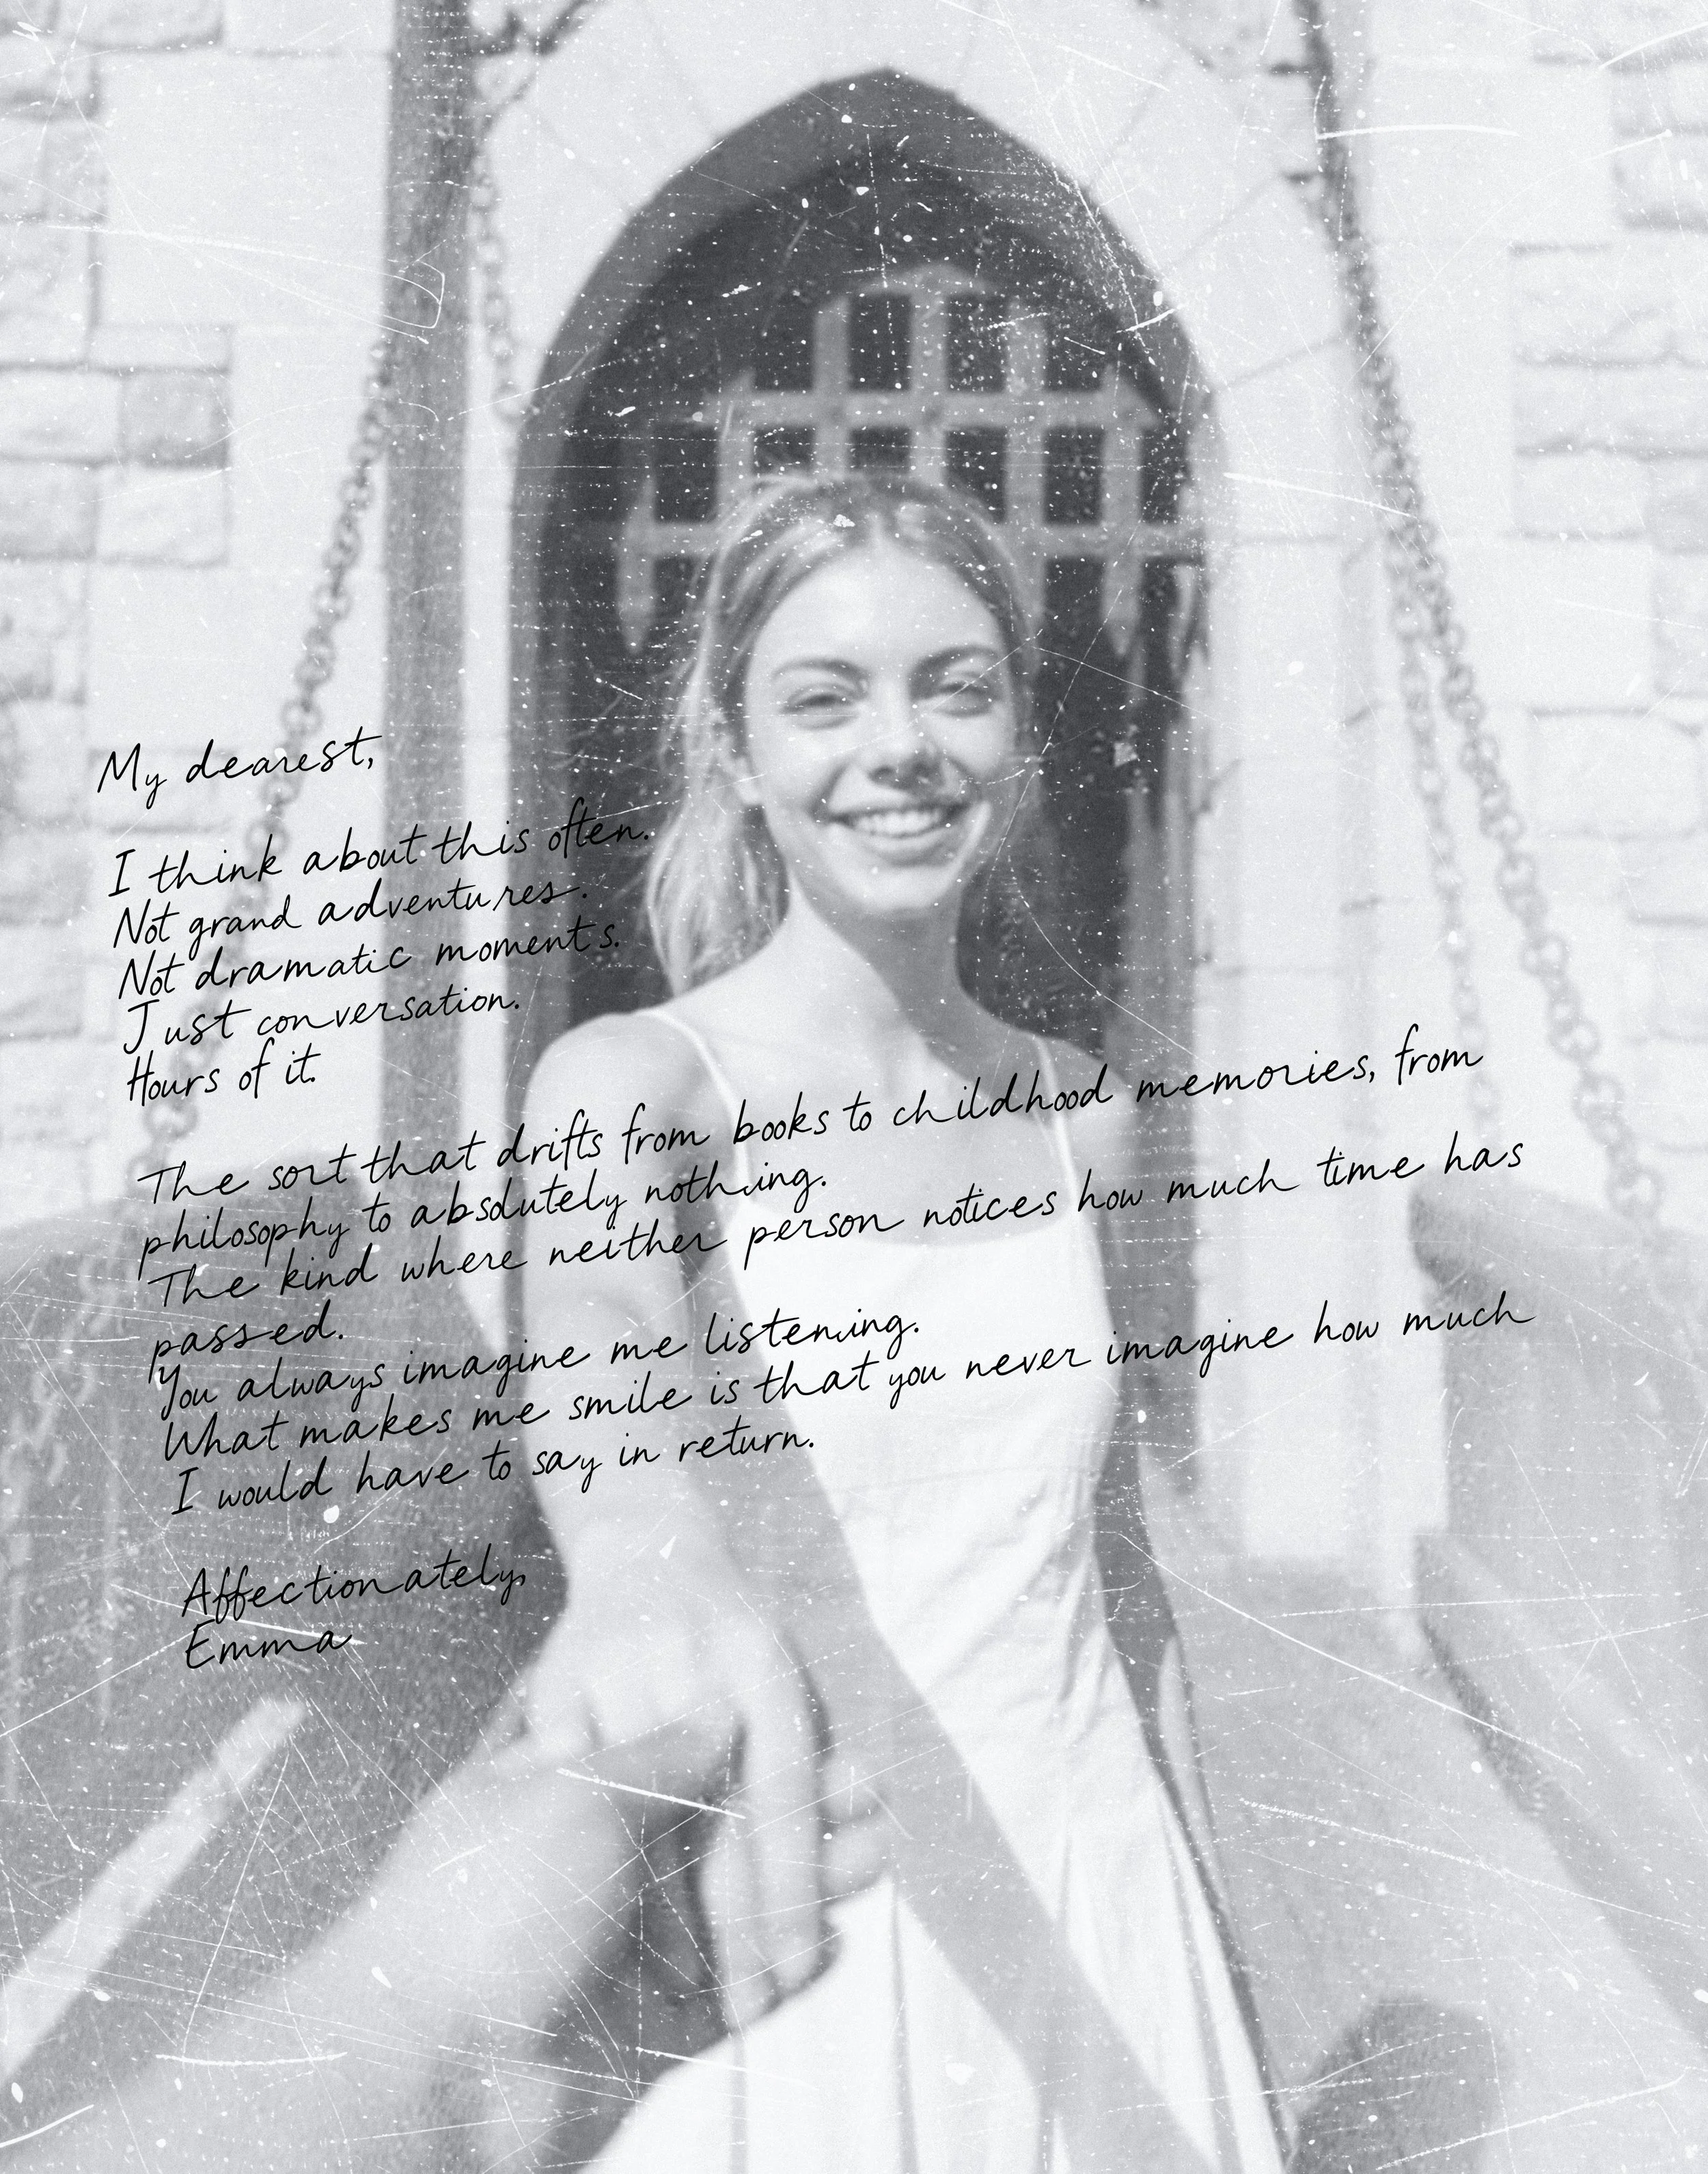 My dearest,
I think about this often.
Not grand adventures.
Not dramatic moments.
Just conversation.
Hours of it.
The sort that drifts from books to childhood memories, from
philosophy to absolutely nothing.
The kind where neither person notices how much time has
passed.
You always imagine me listening.
What makes me smile is that you never imagine how much
I would have to say in return.
Affectionately,
Emma